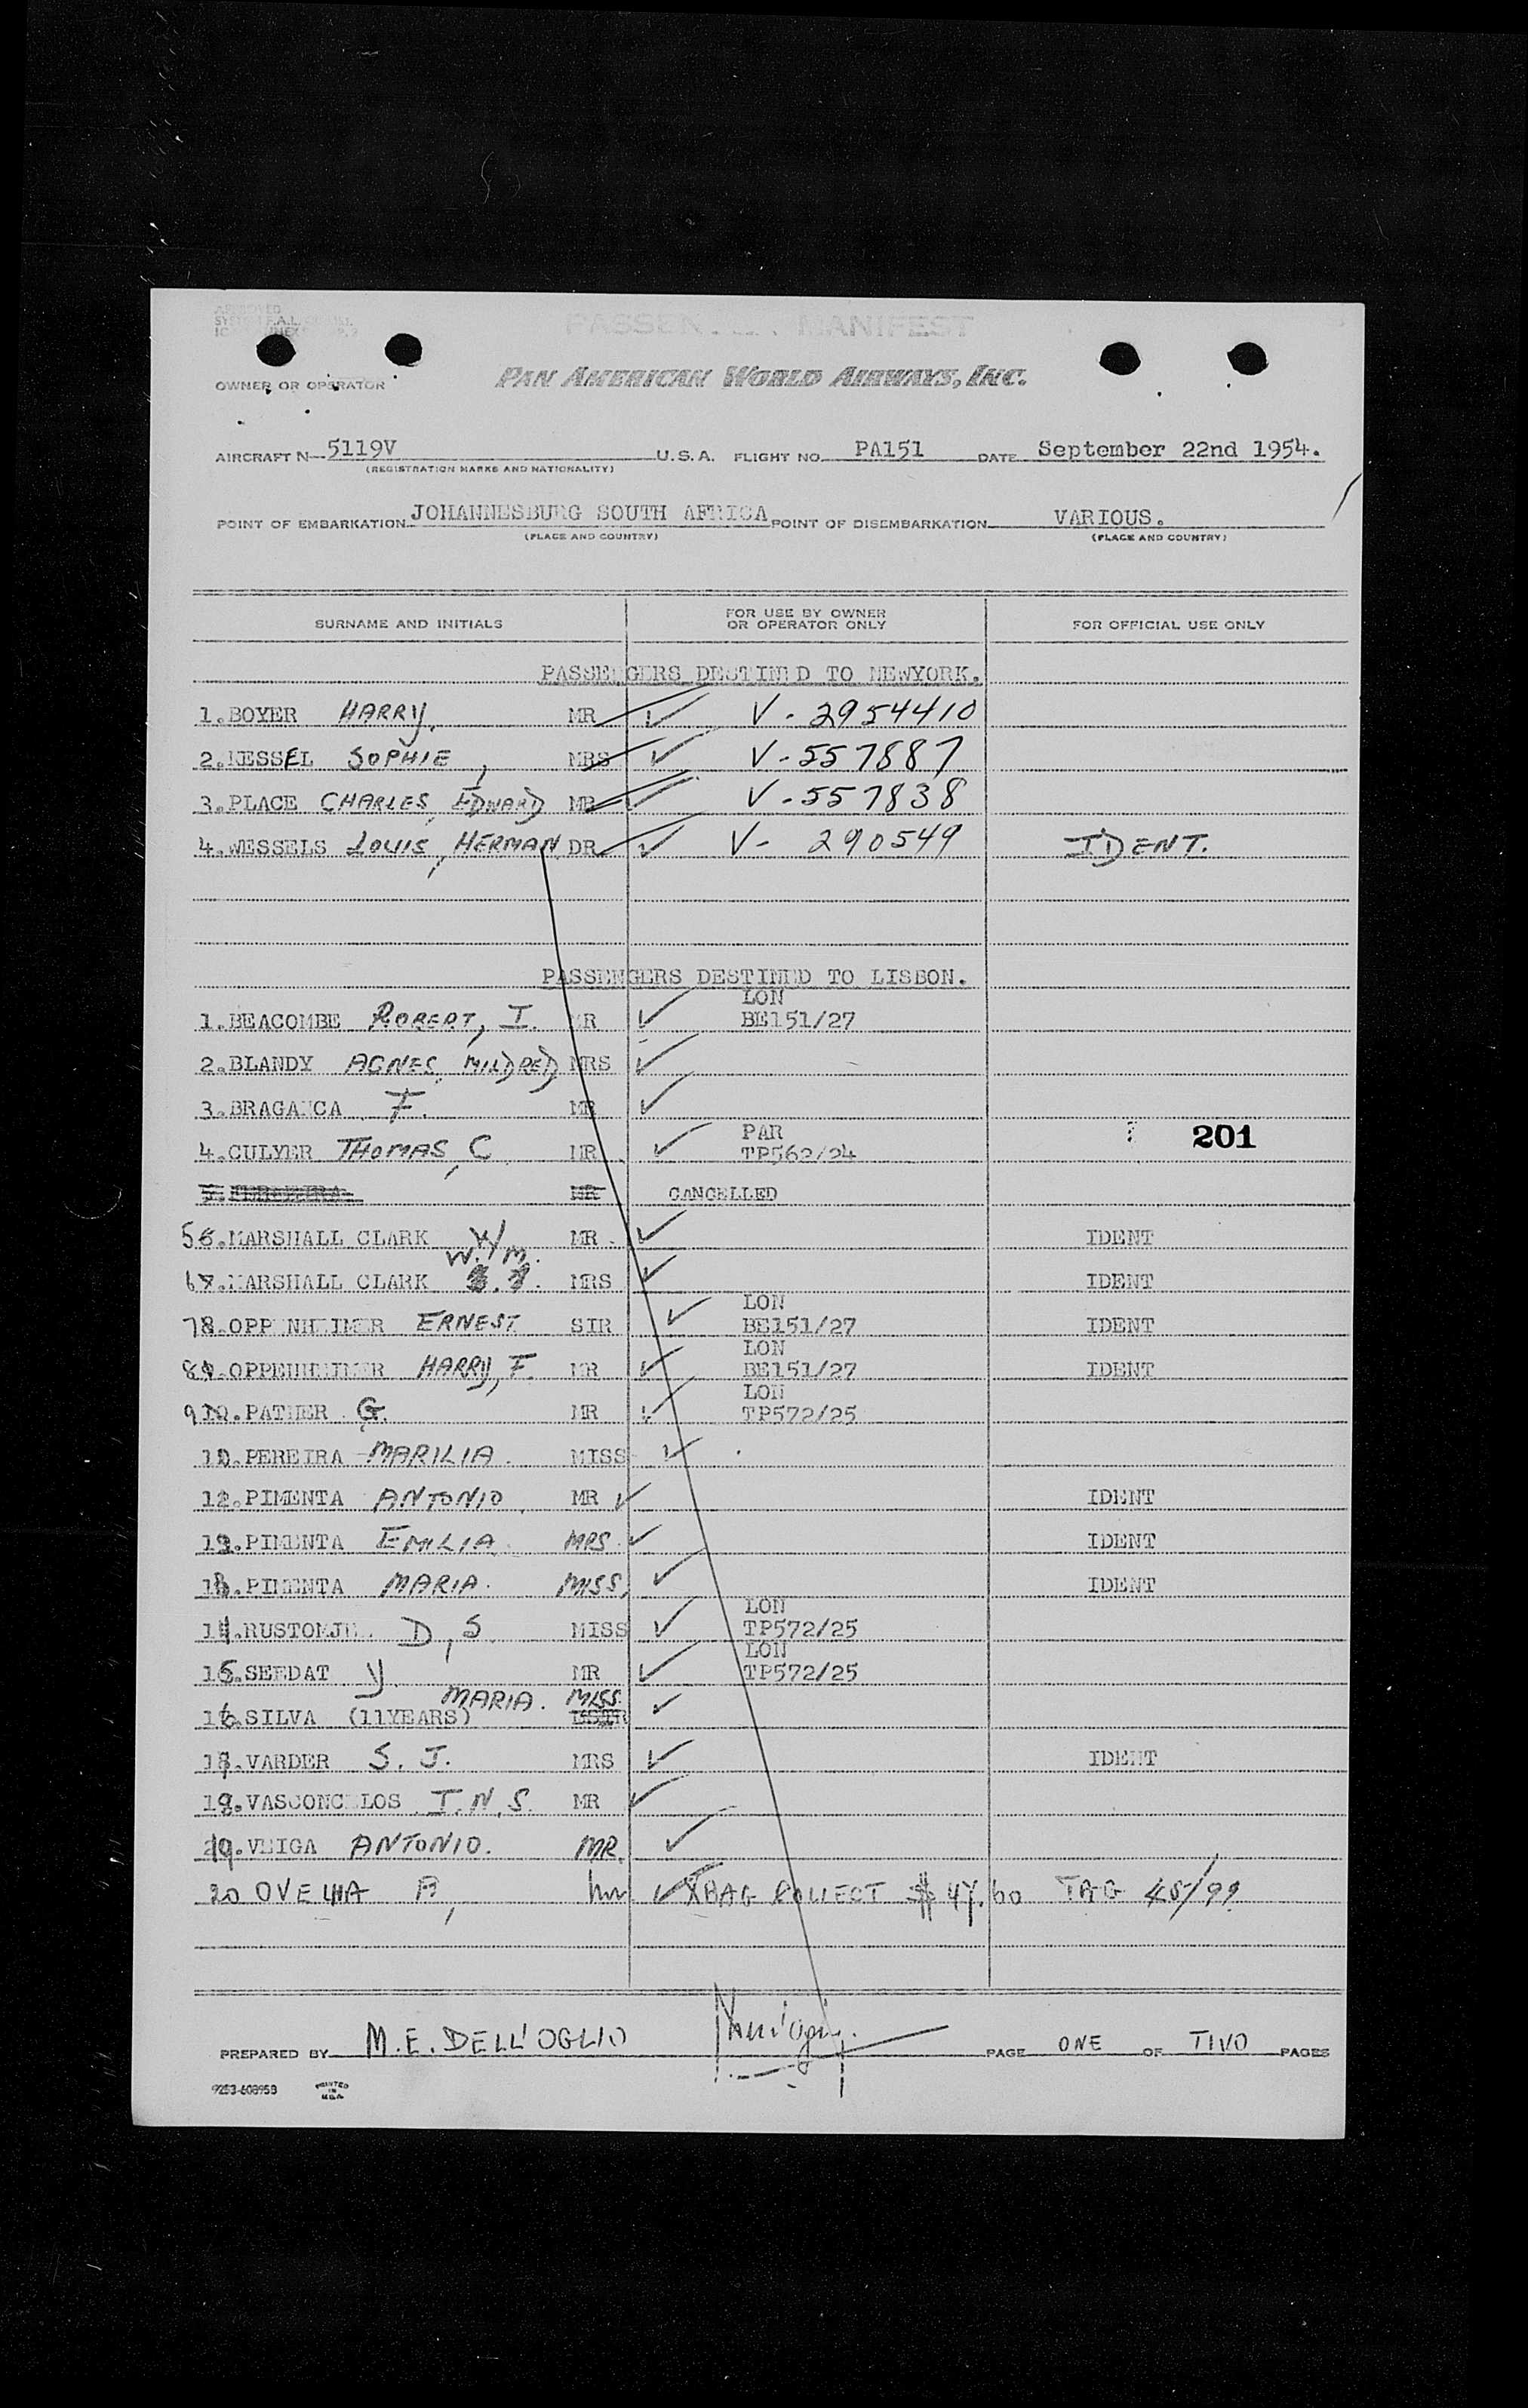 PASSENGER MANIFEST
OWNER OR OPERATOR PAN AMERICAN WORLD AIRWAYS, INC.
AIRCRAFT N 5119V U.S.A. FLIGHT NO. PA151 DATE September 22nd 1954.
(REGISTRATION MARKS AND NATIONALITY)
POINT OF EMBARKATION JOHANNESBURG SOUTH AFRICA POINT OF DISEMBARKATION VARIOUS.
(PLACE AND COUNTRY) (PLACE AND COUNTRY)
SURNAME AND INITIALS FOR USE BY OWNER OR OPERATOR ONLY FOR OFFICIAL USE ONLY
PASSENGERS DESTINED TO NEWYORK.
1.BOYER HARRY. MR ✓ V-2954410
2.KESSEL SOPHIE, MRS ✓ V-557887
3.PLACE CHARLES, EDWARD MR ✓ V-557838
4.WESSELS LOUIS, HERMAN DR ✓ V- 290549 IDENT.
PASSENGERS DESTINED TO LISBON.
LON
1.BEACOMBE ROBERT, I. MR ✓ BE151/27
2.BLANDY AGNES MILDRED MRS ✓
3.BRAGANCA F. MR ✓
PAR 201
4.CULYER THOMAS, C MR ✓ TP562/24
MR CANCELLED
5.MARSHALL CLARK W. MR ✓ IDENT
W.M.
6.MARSHALL CLARK MRS ✓ IDENT
LON
7.OPPENHEIMER ERNEST SIR ✓ BE151/27 IDENT
LON
8.OPPENHEIMER HARRY, F. MR ✓ BE151/27 IDENT
LON
9.PATHER G. MR ✓ TP572/25
10.PEREIRA MARILIA. MISS ✓
11.PIMENTA ANTONIO. MR ✓ IDENT
12.PIMENTA EMILIA. MRS. ✓ IDENT
13.PIMENTA MARIA. MISS, ✓ IDENT
LON
14.RUSTOMJEE. D, S. MISS ✓ TP572/25
LON
15.SEEDAT Y. MR ✓ TP572/25
MARIA. MISS.
16.SILVA (11YEARS) ✓
17.VARDER S. J. MRS ✓ IDENT
18.VASCONCELOS I. N. S. MR ✓
19.VEIGA ANTONIO. MR. ✓
20 OVELHA A, MR ✓ XBAG COLLECT $ 47.60 TAG 45/99
PREPARED BY M.E. DELL'OGLIO PAGE ONE OF TWO PAGES
9253-608958 PRINTED IN U.S.A.